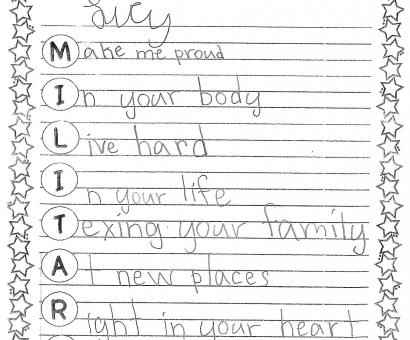 Lucy
Make me proud
In your body
Live hard
In your life
Texing your family
At new places
Right in your heart